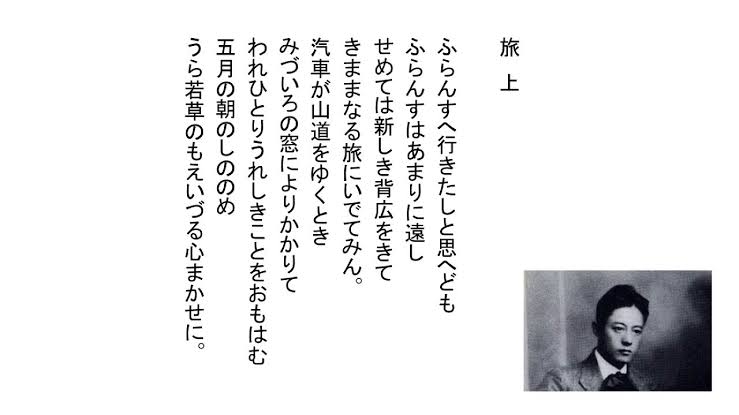 旅上
ふらんすへ行きたしと思へども
ふらんすはあまりに遠し
せめては新しき背広をきて
きままなる旅にいでてみん。
汽車が山道をゆくとき
みづいろの窓によりかかりて
われひとりうれしきことをおもはむ
五月の朝のしののめ
うら若草のもえいづる心まかせに。